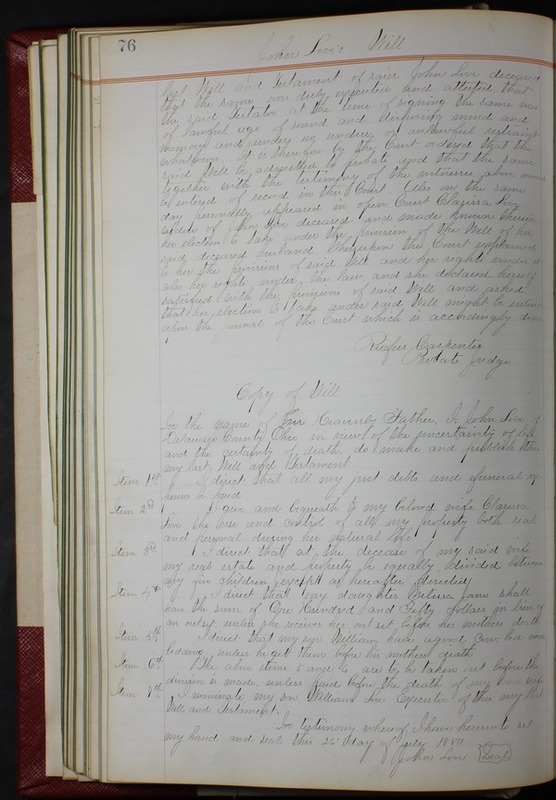 76
John Love Will
last Will and Testament of said John Love deceased
that the same was duly executed and attested, that
the said Testator at the time of signing the same was
of lawful age of sound and disposing mind and
memory and under no undue or unlawful restraint
whatsoever. It is therefore by the Court ordered that the
said Will be admitted to probate and that the same
together with the testimony of the witnesses above named
be entered of record in this Court. Also on the same
day personally appeared in open Court Clarissa Love
widow of John Love deceased and made known therein
her election to take under the provision of the Will of her
said deceased husband. Whereupon the Court explained
to her the provisions of said Will and her rights under it
also her rights under the law, and she declared herself
satisfied with the provisions of said Will and asked
that her election to take under said Will might be entered
upon the journal of the Court which is accordingly done
Rufus Carpenter
Probate Judge
Copy of Will
In the name of our Heavenly Father, I, John Love of
Delaware County Ohio in view of the uncertainty of life
and the certainty of death, do make and publish this
my last Will and Testament.
Item 1st I direct that all my just debts and funeral ex
penses be paid
Item 2d I give and bequeath to my beloved wife Clarissa
Love the use and control of all my property both real
and personal during her natural life
Item 3d I direct that at the decease of my said wife
my real estate and property be equally divided between
my five children except as hereafter directed
Item 4th I direct that my daughter Jane shall
have the sum of One Hundred and Fifty dollars in lieu of
an out set, unless she receives her out set before her mothers death
Item 5th I direct that my son William have a good Cow, and
bedding, unless he get them before his mothers death
Item 6th The above items 5 and 4 are to be taken out before the
division is made, unless paid before the death of my said wife
Item 7th I nominate my son William Love Executor of this my last
Will and Testament.
In testimony whereof I have hereunto set
my hand and seal this 26 day of July 1880
John Love (Seal)